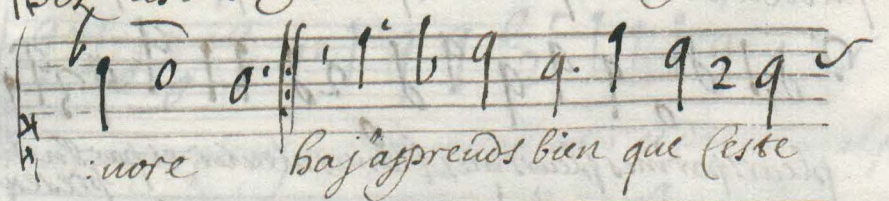 :nore ha j'apprends bien que C'este